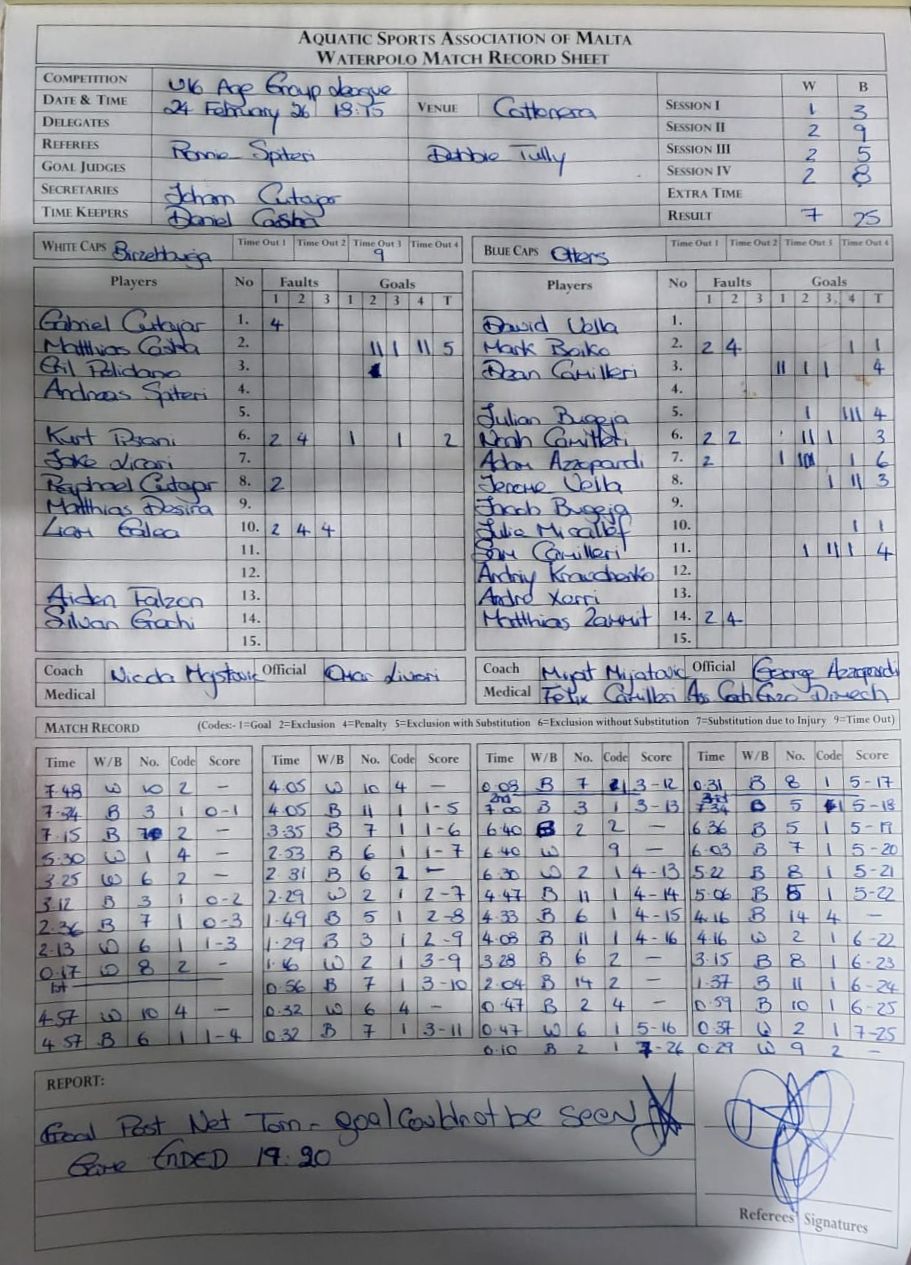 AQUATIC SPORTS ASSOCIATION OF MALTA
WATERPOLO MATCH RECORD SHEET
COMPETITION U16 Age Group League W B
DATE & TIME 24 February 26 18:15 VENUE Cottonera SESSION I 1 3
DELEGATES SESSION II 2 9
REFEREES Ronnie Spiteri Debbie Tully SESSION III 2 5
GOAL JUDGES SESSION IV 2 8
SECRETARIES Cutajar EXTRA TIME
TIME KEEPERS Daniel RESULT 7 25
WHITE CAPS Birzebbuga Time Out 1 Time Out 2 Time Out 3 9 Time Out 4 BLUE CAPS Otters Time Out 1 Time Out 2 Time Out 3 Time Out 4
Players No Faults Goals Players No Faults Goals
1 2 3 1 2 3 4 T 1 2 3 1 2 3 4 T
Gabriel Cutajar 1. 4 David Vella 1.
Matthias 2. II I II 5 Mark Boiko 2. 2 4 I 1
Polidano 3. Dean Camilleri 3. II I I 4
Andreas Spiteri 4. 4.
5. Julian Bugeja 5. I III 4
Kurt Pisani 6. 2 4 I I 2 Noah Camilleri 6. 2 2 II I 3
Jake Licari 7. Adam Azzopardi 7. 2 I I 6
Raphael Cutajar 8. 2 Jerome Vella 8. I II 3
Matthias 9. Jacob Bugeja 9.
Liam Galea 10. 2 4 4 Micallef 10. I 1
11. Sam Camilleri 11. I II I 4
12. Andriy Kravchenko 12.
Aiden Falzon 13. Andre Xerri 13.
Silvan 14. Matthias Zammit 14. 2 4
15. 15.
Coach Official Omar Livori Coach Mijatovic Official George Azzopardi
Medical Medical Felix Camilleri Ass Coach Enzo Dimech
MATCH RECORD (Codes:- 1=Goal 2=Exclusion 4=Penalty 5=Exclusion with Substitution 6=Exclusion without Substitution 7=Substitution due to Injury 9=Time Out)
Time W/B No. Code Score Time W/B No. Code Score Time W/B No. Code Score Time W/B No. Code Score
7.48 W 10 2 - 4.05 W 10 4 - 0.08 B 7 1 3-12 0.31 B 8 1 5-17
7.24 B 3 1 0-1 4.05 B 11 1 1-5 2nd 7.00 B 3 1 3-13 3rd 7.34 B 5 1 5-18
7.15 B 7 2 - 3.35 B 7 1 1-6 6.40 B 2 2 - 6.36 B 5 1 5-19
5.30 W 1 4 - 2.53 B 6 1 1-7 6.40 W 9 - 6.03 B 7 1 5-20
3.25 W 6 2 - 2.31 B 6 2 - 6.30 W 2 1 4-13 5.22 B 8 1 5-21
3.12 B 3 1 0-2 2.29 W 2 1 2-7 4.47 B 11 1 4-14 5.06 B 5 1 5-22
2.36 B 7 1 0-3 1.49 B 5 1 2-8 4.33 B 6 1 4-15 4.16 B 14 4 -
2.13 W 6 1 1-3 1.29 B 3 1 2-9 4.03 B 11 1 4-16 4.16 W 2 1 6-22
0.17 W 8 2 - 1.16 W 2 1 3-9 3.28 B 6 2 - 3.15 B 8 1 6-23
1st 0.56 B 7 1 3-10 2.04 B 14 2 - 1.37 B 11 1 6-24
4.57 W 10 4 - 0.32 W 6 4 - 0.47 B 2 4 - 0.59 B 10 1 6-25
4.57 B 6 1 1-4 0.32 B 7 1 3-11 0.47 W 6 1 5-16 0.37 W 2 1 7-25
0.10 B 2 1 7-26 0.29 W 9 2 -
REPORT:
Goal Post Net Torn - goal could not be seen
Game ENDED 19:20
Referees' Signatures